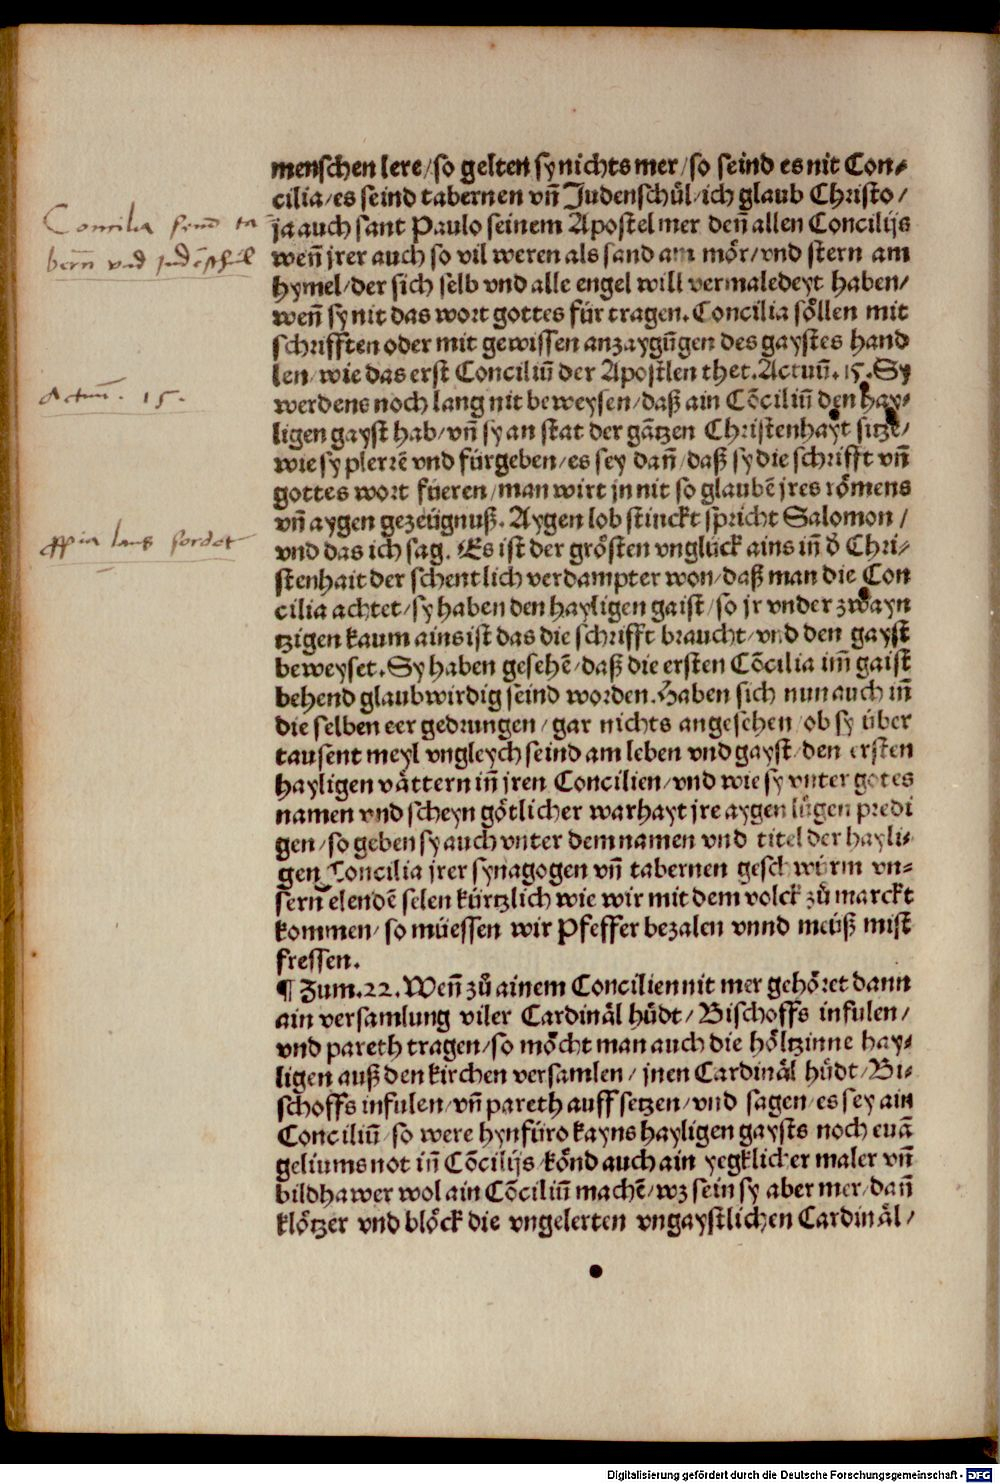 menschen lere/so gelten sy nichts mer/so seind es nit Con⸗
cilia/es seind tabernen vñ Judenschůl/ich glaub Christo/
ja auch sant Paulo seinem Apostel mer deñ allen Concilijs
weñ jrer auch so vil weren als sand am mör/vnd stern am
hymel/der sich selb vnd alle engel will vermaledeyt haben/
weñ sy nit das wort gottes für tragen. Concilia söllen mit
schrifften oder mit gewissen anzaygūgen des gaystes hand
len/wie das erst Conciliū der Apostlen thet. Actuū. 15. Sy
werdens noch lang nit beweysen/daß ain Cōciliū den hay⸗
ligen gayst hab/vñ sy an stat der gātzen Christenhayt sitze/
wie sy plerrē vnd fürgeben/es sey dañ/daß sy die schrifft vñ
gottes wort füeren/man wirt jn nit so glaubē jres römens
vñ aygen gezeügnuß. Aygen lob stinckt spricht Salomon/
vnd das ich sag. Es ist der grösten vnglück ains iñ d̕ Chri⸗
stenhait der schentlich verdampter won/daß man die Con
cilia achtet/sy haben den hayligen gaist/so jr vnder zwayn
tzigen kaum ains ist das die schrifft braucht/vnd den gayst
beweyset. Sy haben gesehē/daß die ersten Cōcilia im̄ gaist
behend glaubwirdig seind worden. Haben sich nun auch iñ
die selben eer gedrungen/gar nichts angesehen/ob sy über
tausent meyl vngleych seind am leben vnd gayst/den ersten
hayligen vättern iñ jren Concilien/vnd wie sy vnter gotes
namen vnd scheyn götlicher warhayt jre aygen lügen predi
gen/so geben sy auch vnter dem namen vnd titel der hayli⸗
gen Concilia jrer synagogen vñ tabernen geschwürm vn⸗
sern elendē selen kürtzlich wie wir mit dem volck zů marckt
kommen/so müessen wir Pfeffer bezalen vnnd meüß mist
fressen.
¶ Zum. 22. Weñ zů ainem Concilien nit mer gehöret dann
ain versamlung viler Cardinäl hüdt/Bischoffs infulen/
vnd pareth tragen/so möcht man auch die höltzinne hay⸗
ligen auß den kirchen versamlen/jnen Cardinäl hüdt/Bi⸗
schoffs infulen/vñ pareth auff setzen/vnd sagen/es sey ain
Conciliū/so were hynfüro kayns hayligen gaysts noch euā
geliums not iñ Cōcilijs/könd auch ain yegklicher maler vñ
bildhawer wol ain Cōciliū machē/wz sein sy aber mer/dañ
klötzer vnd blöck die vngelerten vngaystlichen Cardinäl/
Concilia send ta
bern̄ vnd judēschůl
Actuū. 15.
laus sordet
Digitalisierung gefördert durch die Deutsche Forschungsgemeinschaft - DFG